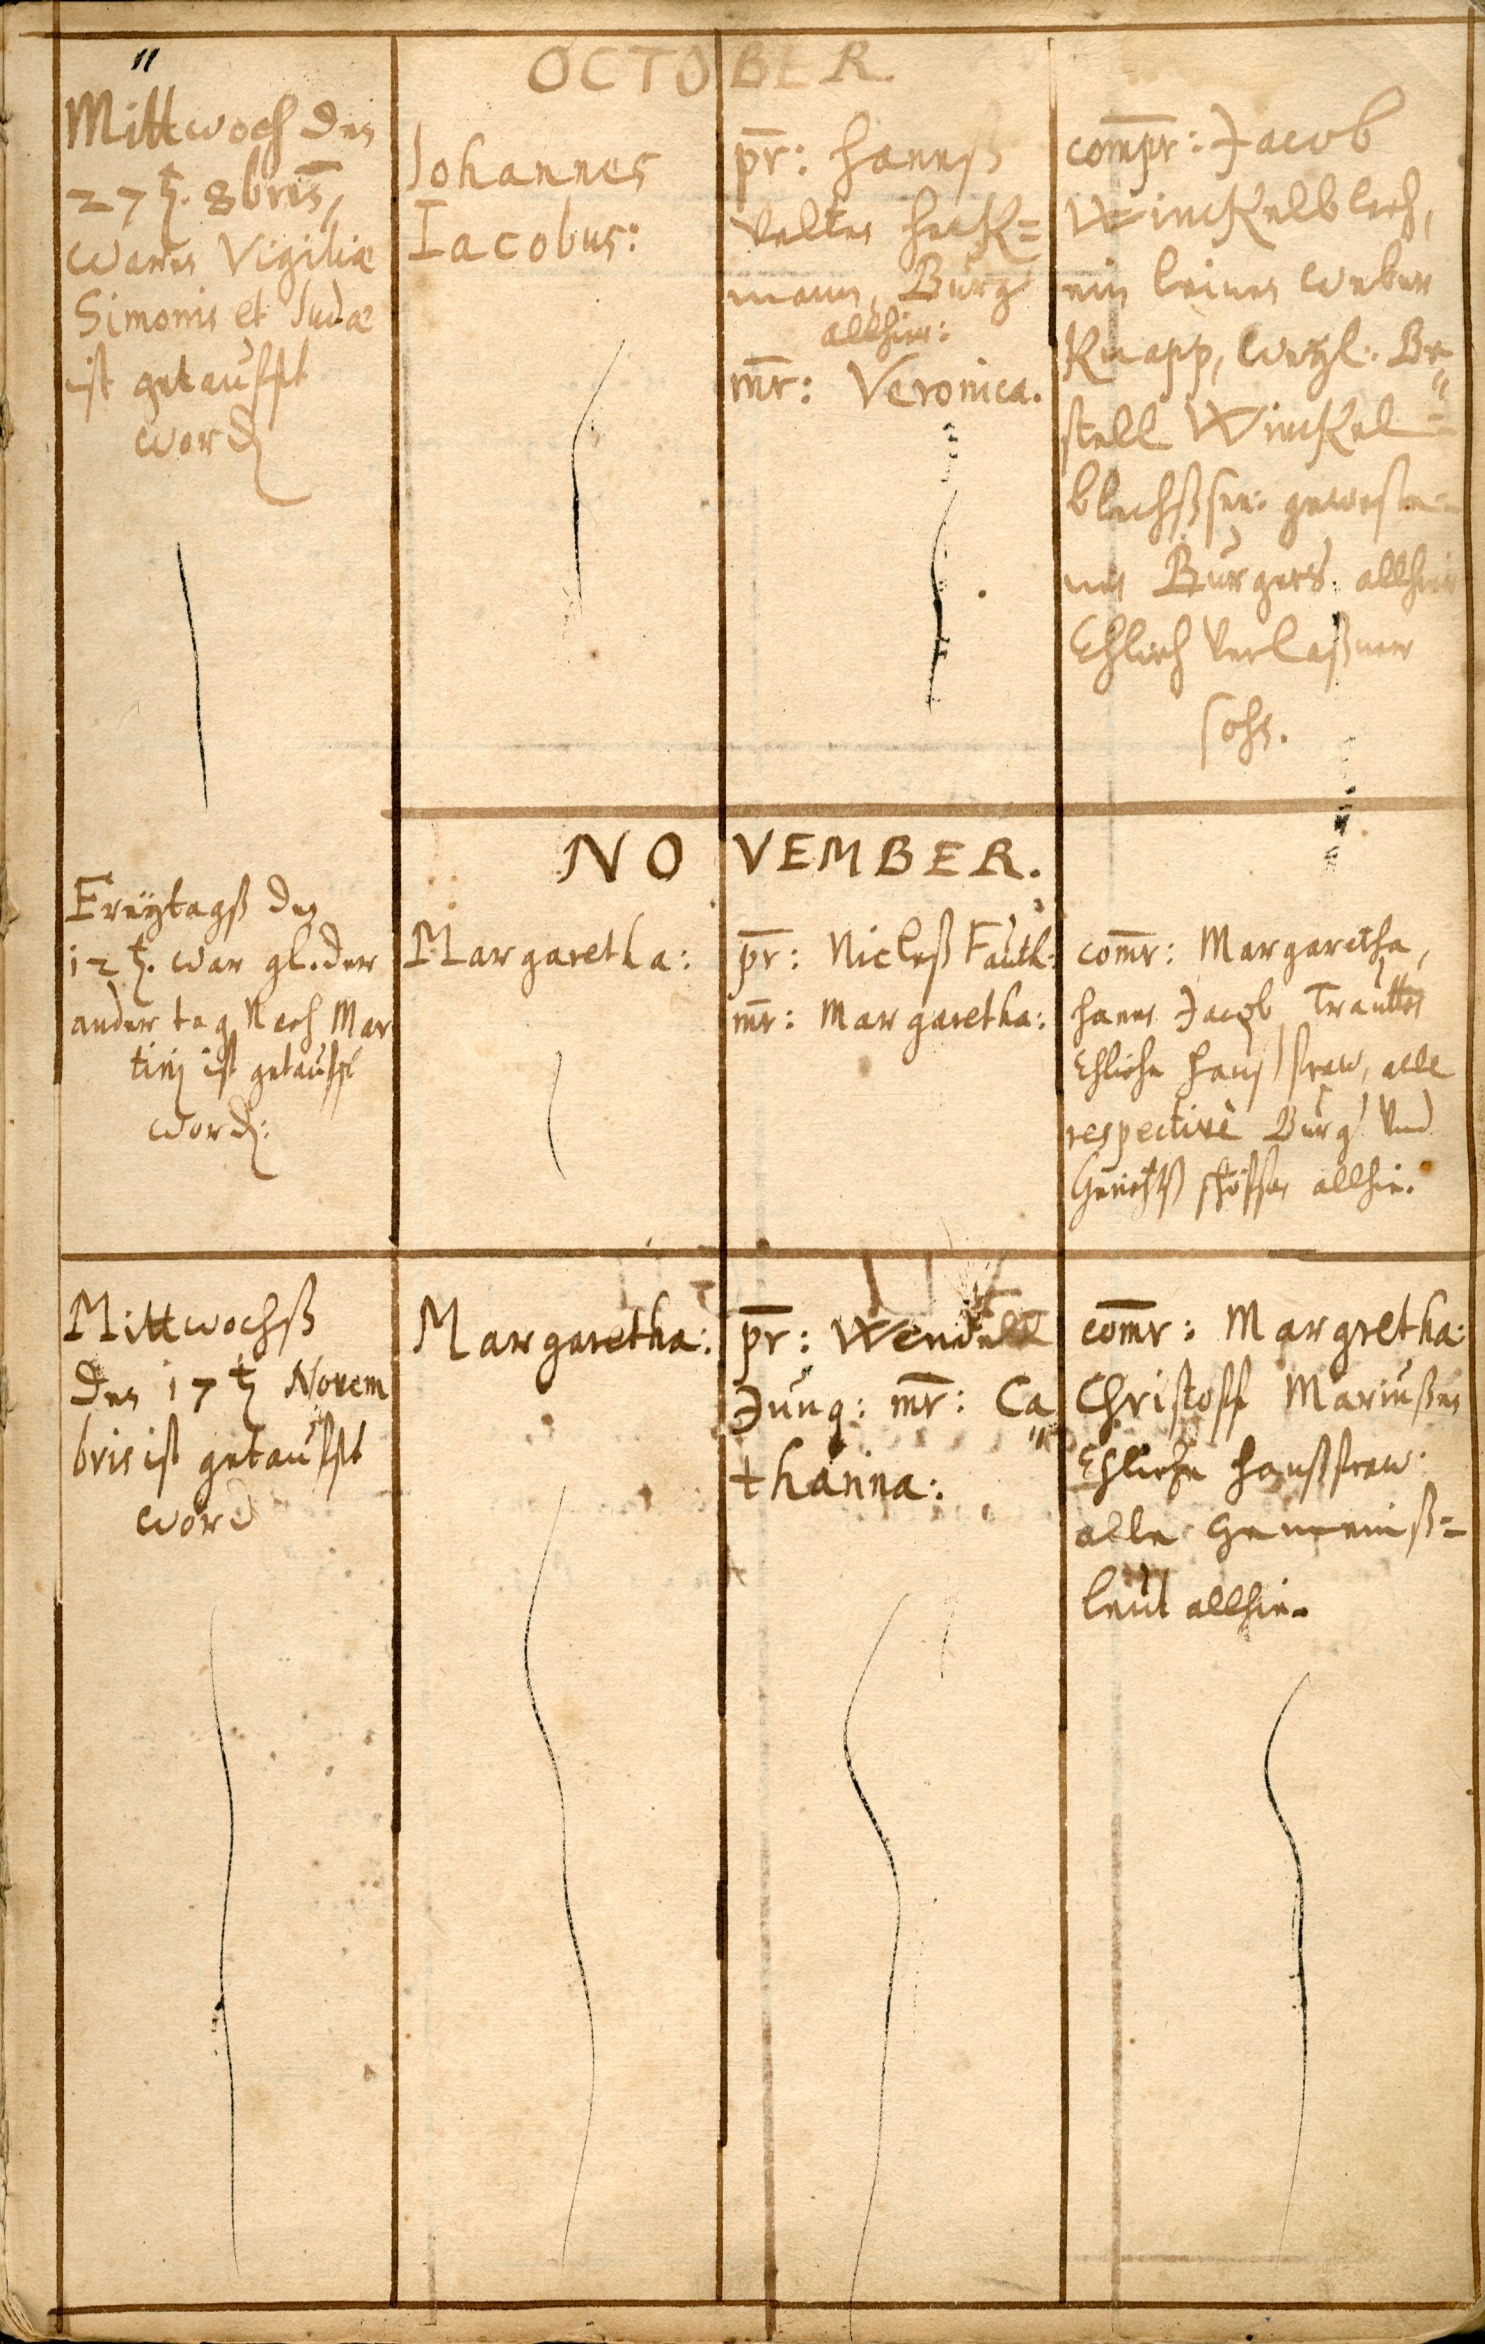 OCTOBER
Mittwoch den
27 t. 8bris,
waren Vigiliæ
Simonis et Judæ
ist getaufft
word
Johannes
Jacobus:
pr: Hannß
Velten Heck=
mann, Burg
allhier:
mr: Veronica.
compr: Jacob
Winckelblech,
ein leinen Weber
Knapp, weyl: Be
stell Winckel=
blechß see: gewese=
nen Burgers allhier
Ehlich verlaßner
sohn.
NOVEMBER.
Freytagß den
12 t. war gl. der
ander tag Nach Mar
tinj ist getaufft
word:
Margaretha:
pr: Niclaß Fauth:
mr: Margaretha:
comr: Margaretha,
Hanns Jacob Trautten
Ehliche Hausfraw, alle
respectivè Burg Und
Gerichtß schöffen allhie.
Mittwochß
den 17 t Novem
bris ist getaufft
word
Margaretha:
pr: Wendell
Jung: mr: Ca
tharina:
comr: Margretha:
Christoff Mariußen
Ehliche Haußfraw
alle Gemeinß=
leut allhie.